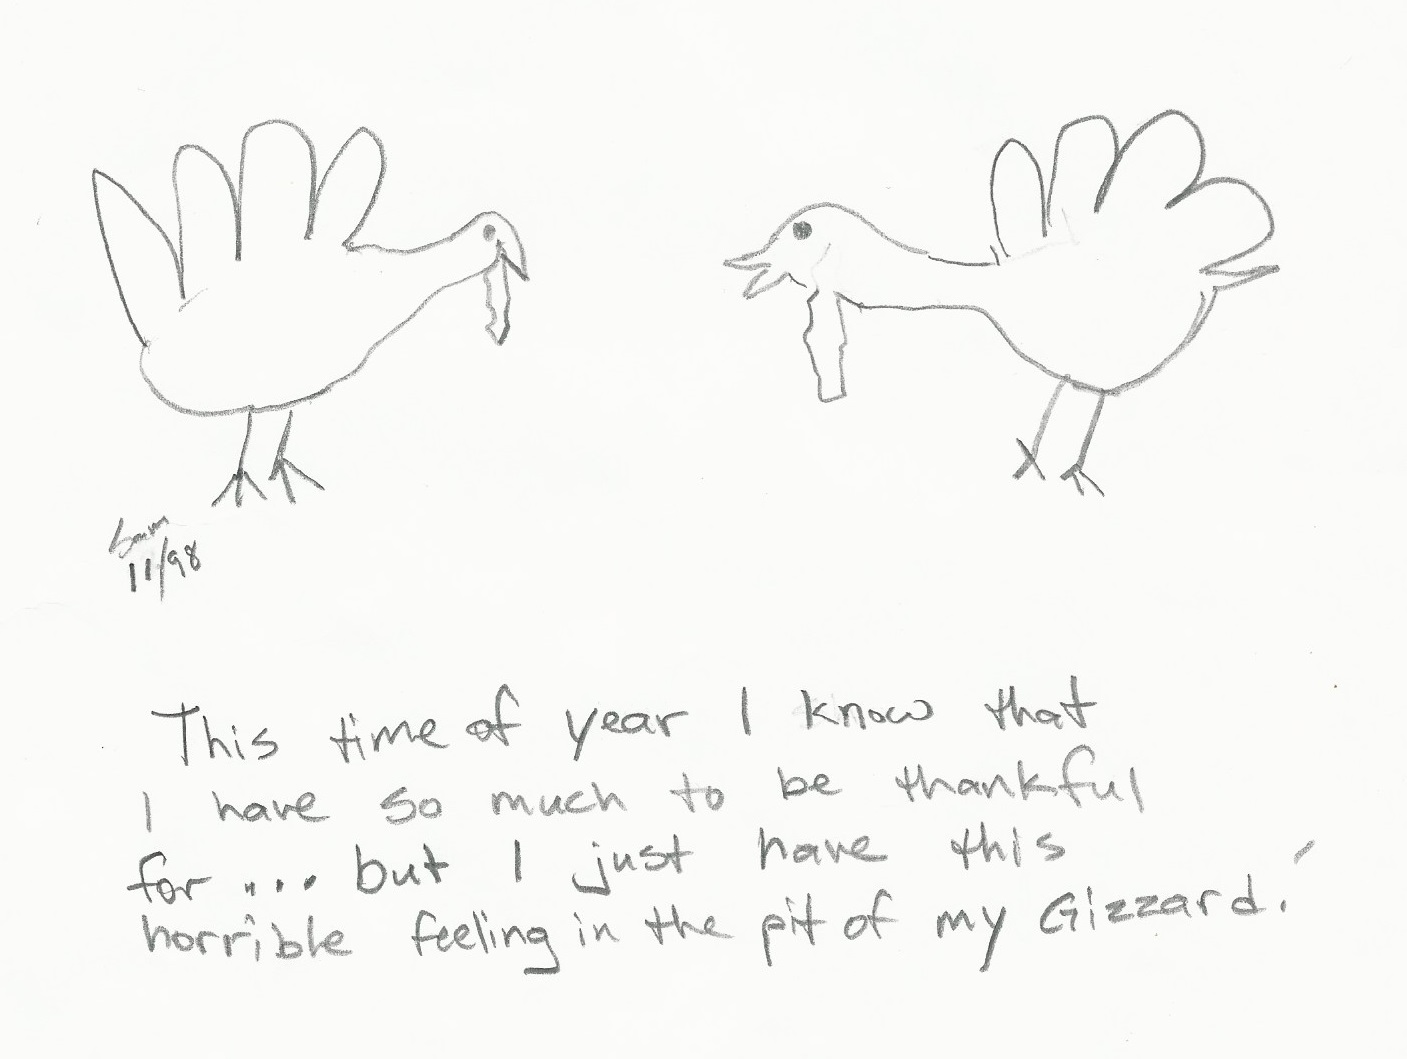 Sam
11/98
This time of year I know that
I have so much to be thankful
for ... but I just have this
horrible feeling in the pit of my Gizzard.